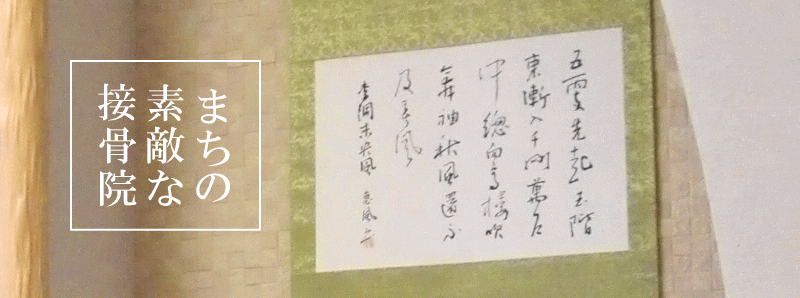 まちの
素敵な
接骨院
五雲先起玉階
東漸入千門萬戸
中總向高樓吹
舞袖秋風還不
及春風
未央風